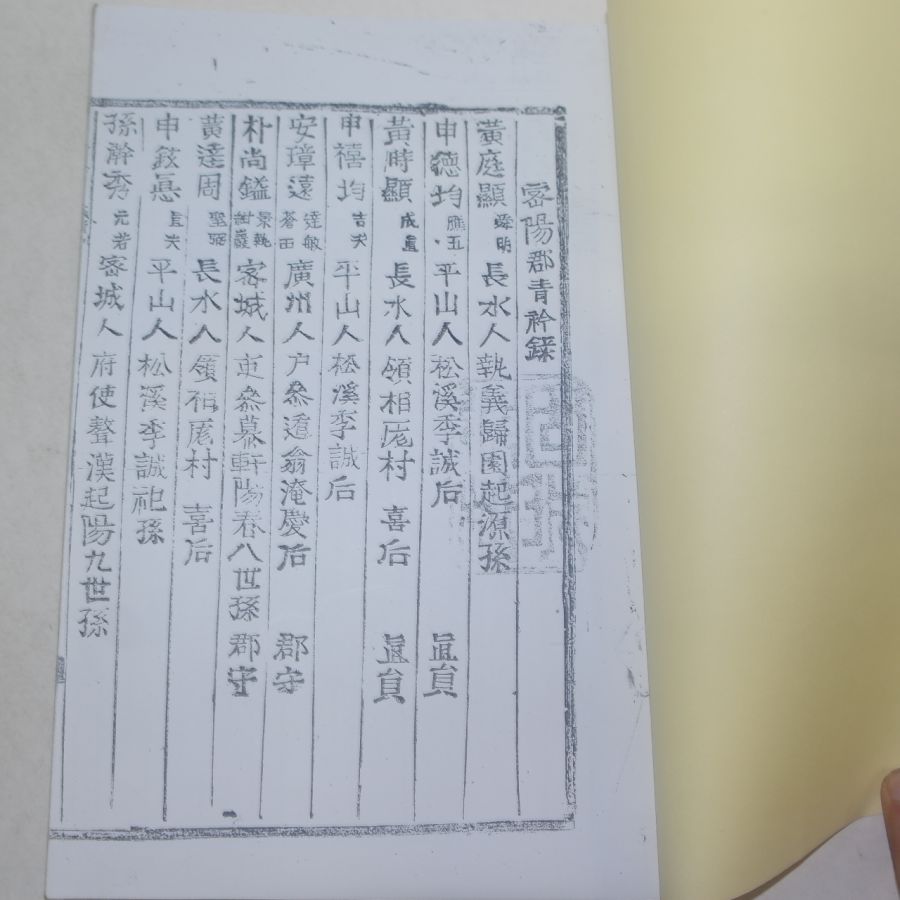 密陽郡青衿錄
黃庭顯 舜明 長水人 執義歸園起源孫
申德均 應五 平山人 松溪季誠后 直員
黃時顯 成直 長水人 領相厖村 喜后 直員
申禧均 吉夫 平山人 松溪季誠后
安璋遠 達敏 蒼西 廣州人 戶參遁翁淹慶后 郡守
朴尚鎰 景執 紺巖 密城人 吏參慕軒陽春八世孫 郡守
黃達周 聖弼 長水人 領相厖村 喜后
申 平山人 松溪季誠祀孫
孫瀚秀 元若 密城人 府使聱漢起陽九世孫